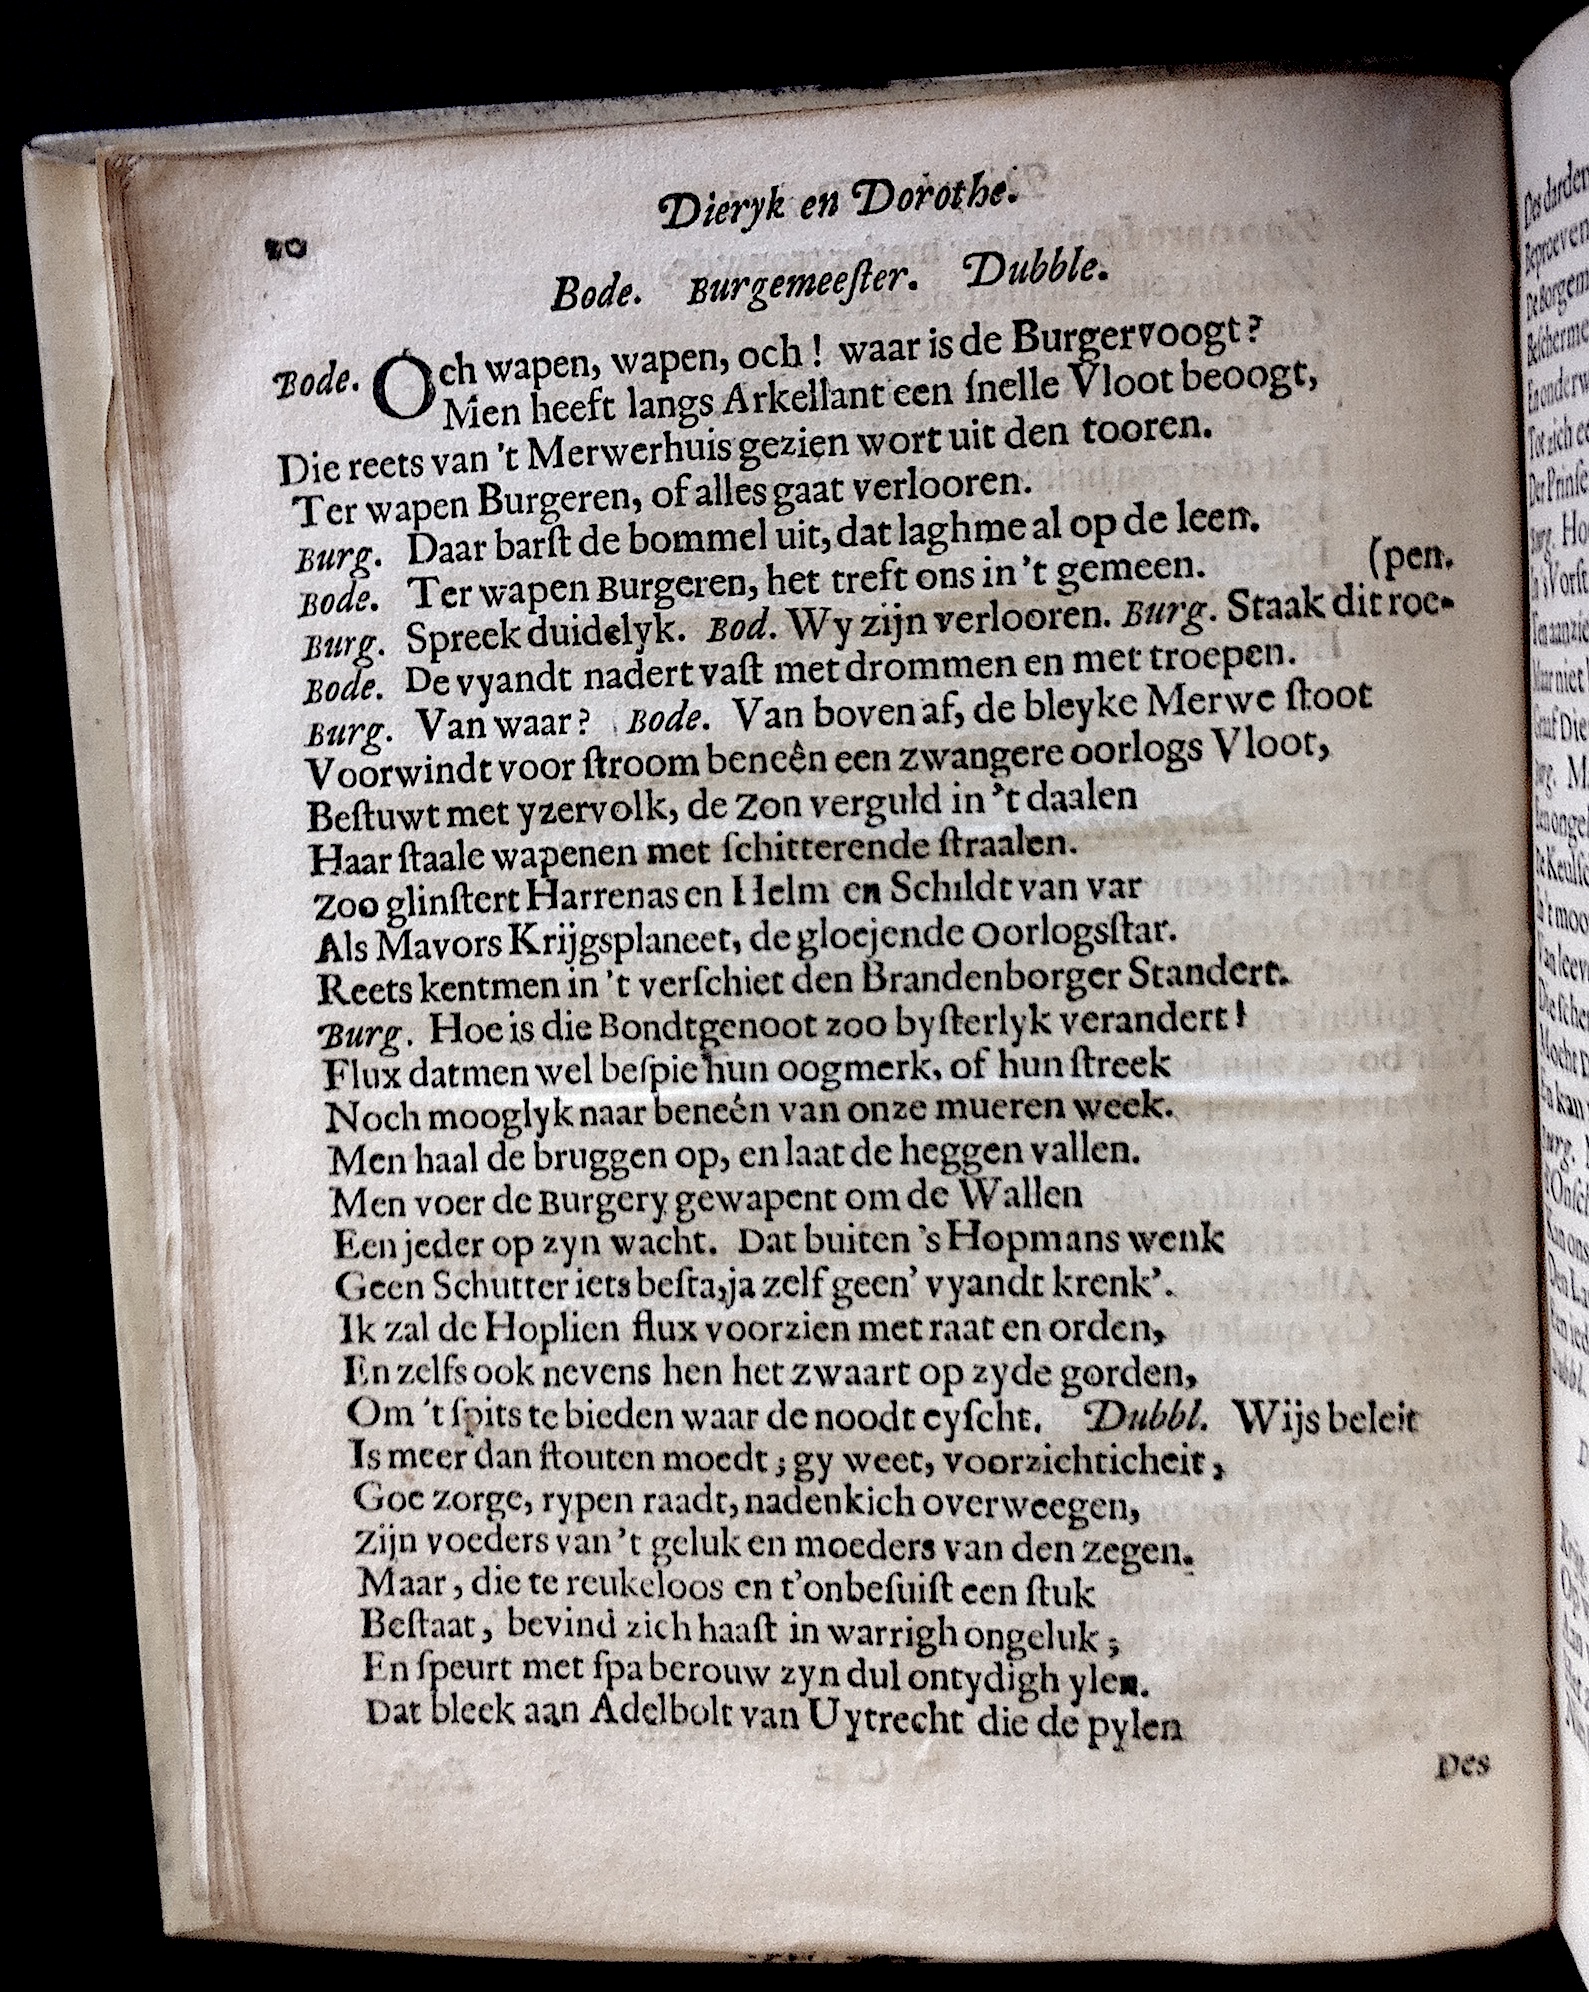 20
Dieryk en Dorothe.
Bode. Burgemeeſter. Dubble.
Bode. Och wapen, wapen, och! waar is de Burgervoogt?
Men heeft langs Arkellant een ſnelle Vloot beoogt,
Die reets van 't Merwerhuis gezien wort uit den tooren.
Ter wapen Burgeren, of alles gaat verlooren.
Burg. Daar barſt de bommel uit, dat laghme al op de leen.
Bode. Ter wapen Burgeren, het treft ons in 't gemeen.
(pen.
Burg. Spreek duidelyk. Bod. Wy zijn verlooren. Burg. Staak dit roe-
Bode. De vyandt nadert vaſt met drommen en met troepen.
Burg. Van waar? Bode. Van boven af, de bleyke Merwe ſtoot
Voorwindt voor ſtroom beneên een zwangere oorlogs Vloot,
Beſtuwt met yzervolk, de Zon verguld in 't daalen
Haar ſtaale wapenen met ſchitterende ſtraalen.
Zoo glinſtert Harrenas en Helm en Schildt van var
Als Mavors Krijgsplaneet, de gloejende oorlogsſtar.
Reets kentmen in 't verſchiet den Brandenborger Standert.
Burg. Hoe is die Bondtgenoot zoo byſterlyk verandert!
Flux datmen wel beſpie hun oogmerk, of hun ſtreek
Noch mooglyk naar beneén van onze mueren week.
Men haal de bruggen op, en laat de heggen vallen.
Men voer de Burgery gewapent om de Wallen
Een jeder op zyn wacht. Dat buiten 's Hopmans wenk
Geen Schutter iets beſta, ja zelf geen' vyandt krenk'.
Ik zal de Hoplien flux voorzien met raat en orden,
En zelfs ook nevens hen het zwaart op zyde gorden,
Om 't ſpits te bieden waar de noodt eyſcht. Dubbl. Wijs beleit
Is meer dan ſtouten moedt; gy weet, voorzichticheit,
Goe zorge, rypen raadt, nadenkich overweegen,
Zijn voeders van 't geluk en moeders van den zegen.
Maar, die te reukeloos en t'onbeſuiſt een ſtuk
Beſtaat, bevind zich haaſt in warrigh ongeluk;
En ſpeurt met ſpa berouw zyn dul ontydigh ylen.
Dat bleek aan Adelbolt van Uytrecht die de pylen
Des